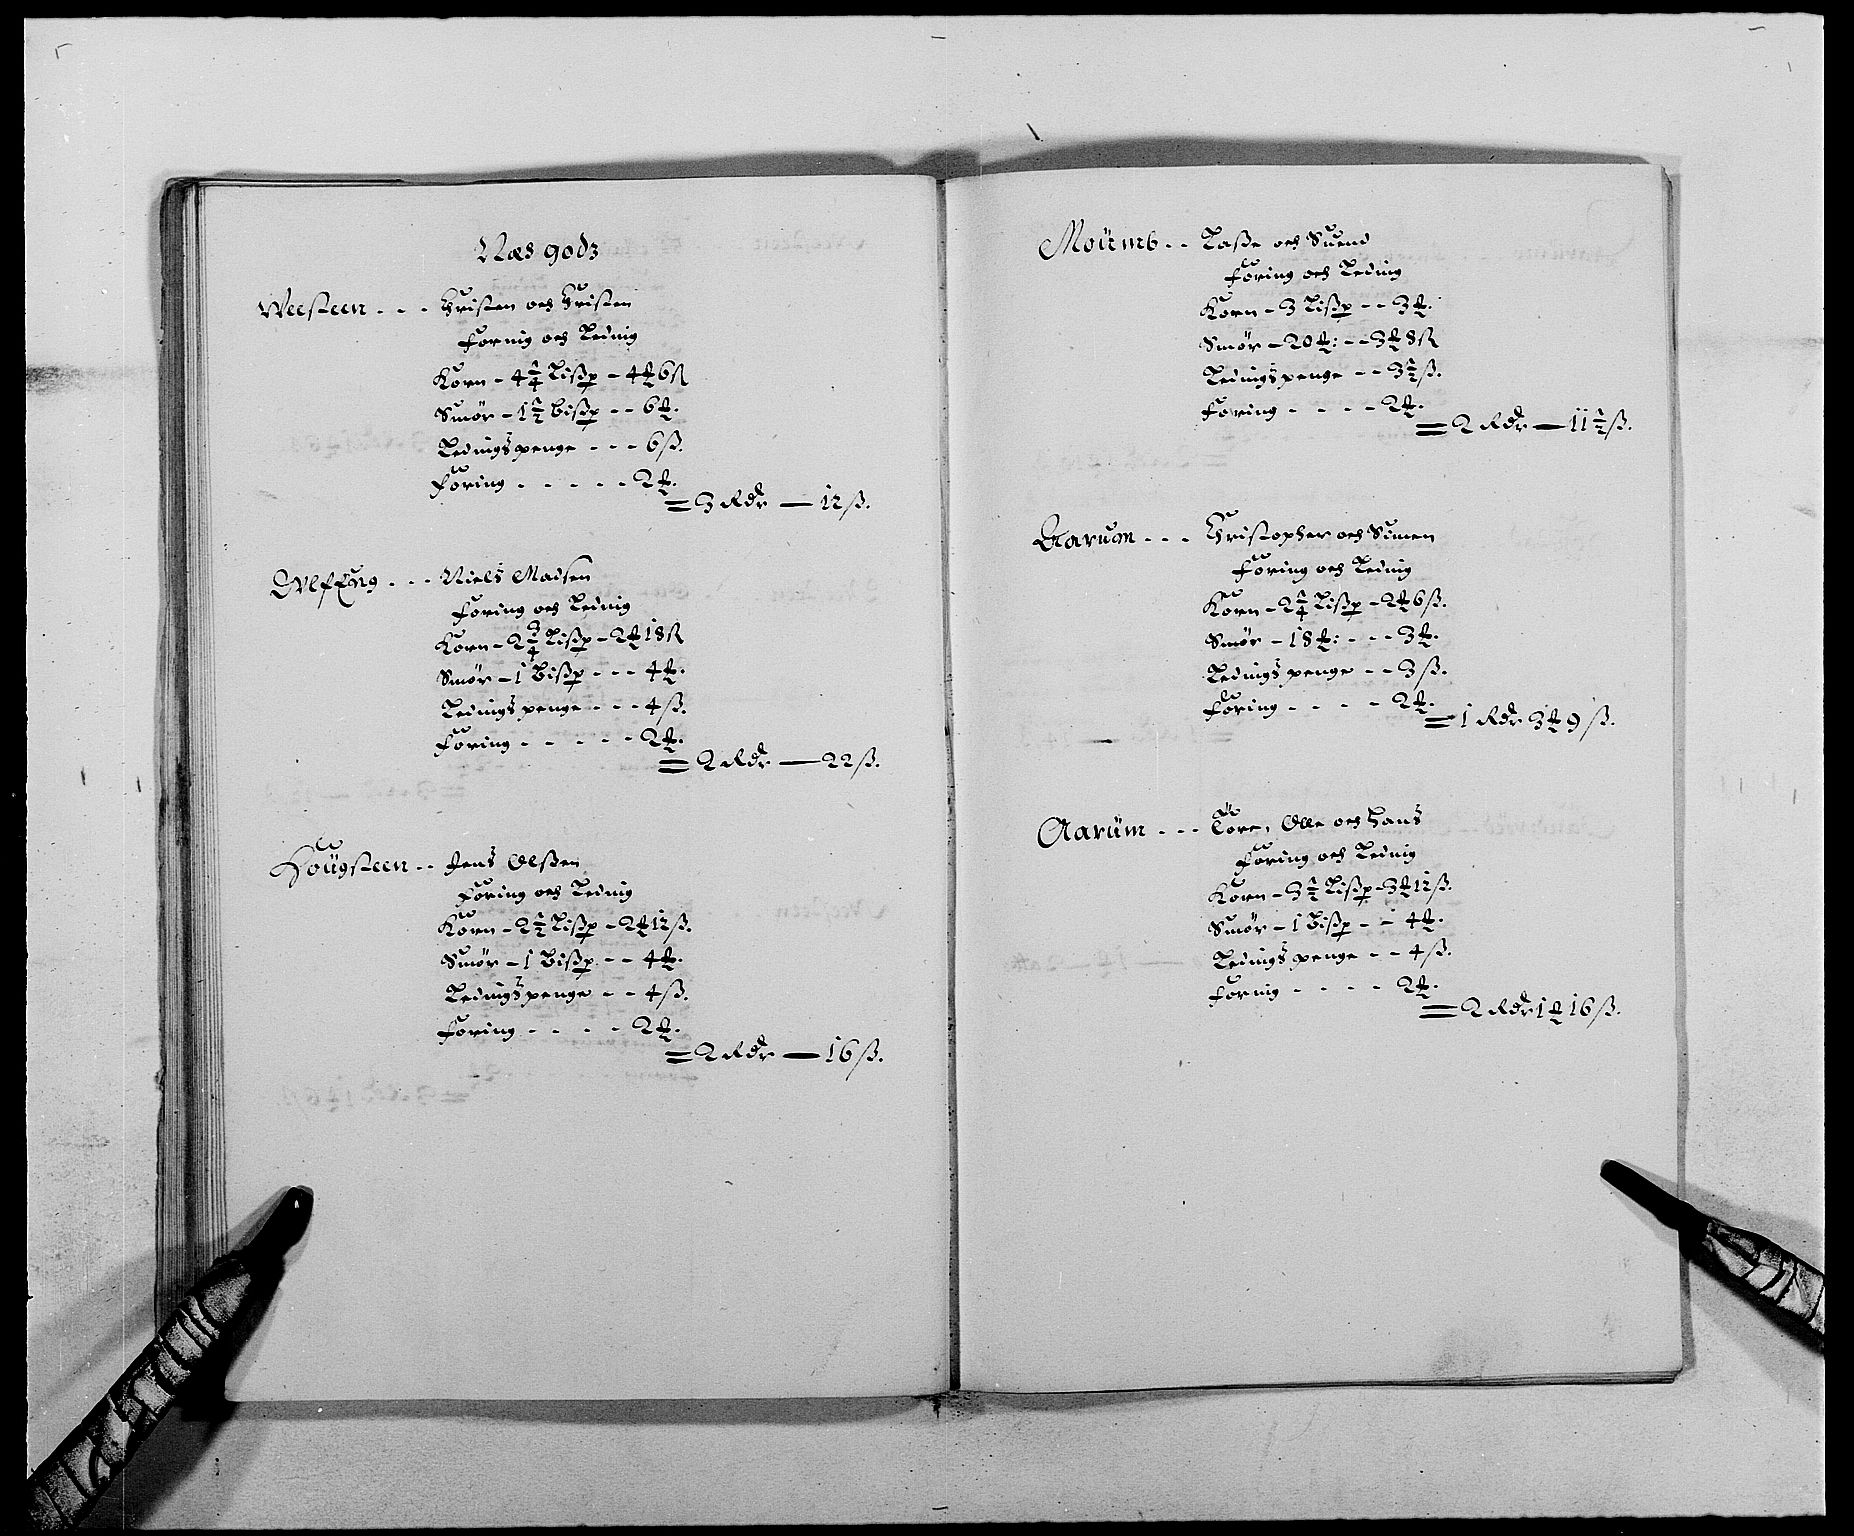 Næs godz
Weesteen - - - Christen och Christen
Foring och Leding
Korn - 4 1/4 Lißp - 4 ℔ 6 ß
Smør - 1 1/2 bißp - - 6 ℔.
Ledingspenge - - - 6 ß.
Foring - - - - - 2 ℔.
= 3 Rdr — 12 ß.
- - - Niels Madsen
Foring och Leding
Korn - 2 3/4 Lißp - 2 ℔ 18 ß
Smør - 1 bißp - - - 4 ℔.
Ledingspenge - - - 4 ß.
Foring - - - - - 2 ℔.
= 2 Rdr — 22 ß.
Houგsteen - - Jens Olßen
Foring och Leding
Korn - 2 1/2 Lißp - 2 ℔ 12 ß.
Smør - 1 bißp - - 4 ℔.
Ledingspenge - - 4 ß.
Foring - - - - 2 ℔.
= 2 Rdr — 16 ß.
Moümb - - Laße och Suend
Foring och Leding
Korn - 3 Lißp - - 3 ℔.
Smør - 20 ℔: - - 3 ℔ 8 ß
Ledingspenge - - 3 1/2 ß.
Foring - - - - 2 ℔.
= 2 Rdr — 11 1/2 ß.
Aarum - - - Christopher och Simen
Foring och Leding
Korn - 2 1/4 Lißp - 2 ℔ 6 ß.
Smør - 18 ℔: - - - 3 ℔.
Ledingspenge - - 3 ß.
Foring - - - - 2 ℔.
= 1 Rdr 3 ℔ 9 ß.
Aarüm - - - Tore, Olle och Hans
Foring och Leding
Korn - 3 1/2 Lißp - 3 ℔ 12 ß.
Smør - 1 bißp - - 4 ℔.
Ledingspenge - - 4 ß.
Foring - - - - 2 ℔.
= 2 Rdr 1 ℔ 16 ß.